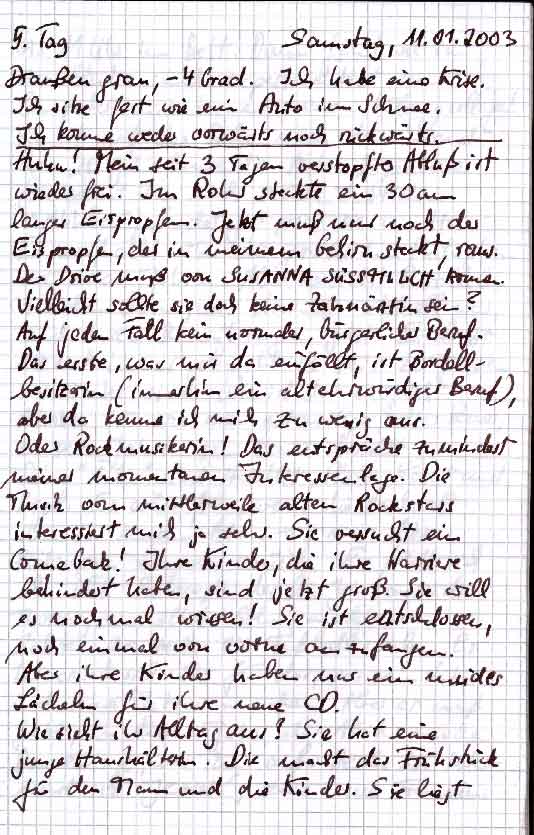 5. Tag Samstag, 11.01.2003
Draußen grau, -4 Grad. Ich habe eine Krise.
Ich sitze fest wie ein Auto im Schnee.
Ich komme weder vorwärts noch rückwärts.
Huhu! Mein seit 3 Tagen verstopfter Abfluß ist
wieder frei. Im Rohr steckte ein 30 cm
langer Eispropfen. Jetzt muß nur noch der
Eispropfen, der in meinem Gehirn steckt, raus.
Der Drive muß von SUSANNA SÜSSMILCH kommen.
Vielleicht sollte sie doch keine Zahnärztin sein?
Auf jeden Fall kein normaler, bürgerlicher Beruf.
Das erste, was mir da einfällt, ist Bordell-
besitzerin (immerhin ein altehrwürdiger Beruf),
aber da kenne ich mich zu wenig aus.
Oder Rockmusikerin! Das entspräche zumindest
meiner momentanen Interessenlage. Die
Musik von mittlerweile alten Rockstars
interessiert mich ja sehr. Sie versucht ein
Comeback! Ihre Kinder, die ihre Karriere
behindert haben, sind jetzt groß. Sie will
es nochmal wissen! Sie ist entschlossen,
noch einmal von vorne anzufangen.
Aber ihre Kinder haben nur ein müdes
Lächeln für ihre neue CD.
Wie sieht ihr Alltag aus? Sie hat eine
junge Haushälterin. Die macht das Frühstück
für den Mann und die Kinder. Sie liegt